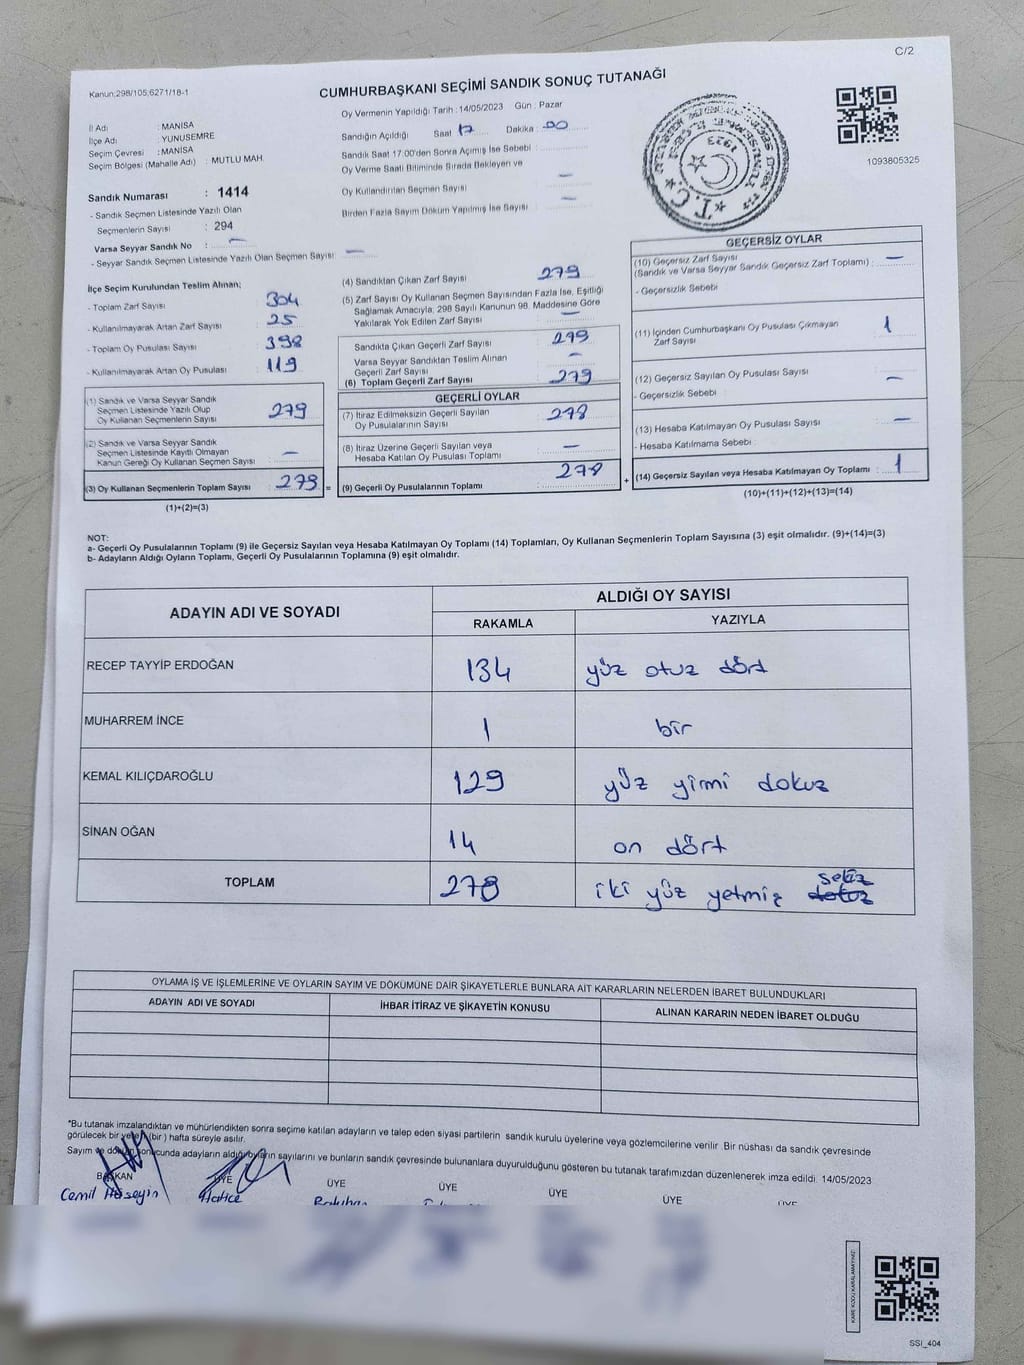 C/2
Kanun;298/105;6271/18-1
CUMHURBAŞKANI SEÇİMİ SANDIK SONUÇ TUTANAĞI
İl Adı : MANİSA
İlçe Adı : YUNUSEMRE
Seçim Çevresi : MANİSA
Seçim Bölgesi (Mahalle Adı) : MUTLU MAH.
Sandık Numarası : 1414
- Sandık Seçmen Listesinde Yazılı Olan
Seçmenlerin Sayısı : 294
Varsa Seyyar Sandık No : —
- Seyyar Sandık Seçmen Listesinde Yazılı Olan Seçmen Sayısı : —
Oy Vermenin Yapıldığı Tarih : 14/05/2023 Gün : Pazar
Sandığın Açıldığı Saat 17 Dakika : 00
Sandık Saat 17:00'den Sonra Açımış İse Sebebi :
Oy Verme Saati Bitiminde Sırada Bekleyen ve
Oy Kullandırılan Seçmen Sayısı —
Birden Fazla Sayım Döküm Yapılmış İse Sayısı —
T.C.
1923
1093805325
İlçe Seçim Kurulundan Teslim Alınan;
- Toplam Zarf Sayısı : 304
- Kullanılmayarak Artan Zarf Sayısı : 25
- Toplam Oy Pusulası Sayısı : 398
- Kullanılmayarak Artan Oy Pusulası : 119
(1) Sandık ve Varsa Seyyar Sandık
Seçmen Listesinde Yazılı Olup
Oy Kullanan Seçmenlerin Sayısı : 279
(2) Sandık ve Varsa Seyyar Sandık
Seçmen Listesinde Kayıtlı Olmayan
Kanun Gereği Oy Kullanan Seçmen Sayısı : —
(3) Oy Kullanan Seçmenlerin Toplam Sayısı : 279 =
(1)+(2)=(3)
(4) Sandıktan Çıkan Zarf Sayısı 279
(5) Zarf Sayısı Oy Kullanan Seçmen Sayısından Fazla İse, Eşitliği
Sağlamak Amacıyla; 298 Sayılı Kanunun 98. Maddesine Göre
Yakılarak Yok Edilen Zarf Sayısı : —
Sandıkta Çıkan Geçerli Zarf Sayısı : 279
Varsa Seyyar Sandıktan Teslim Alınan
Geçerli Zarf Sayısı : —
(6) Toplam Geçerli Zarf Sayısı : 279
GEÇERLİ OYLAR
(7) İtiraz Edilmeksizin Geçerli Sayılan
Oy Pusulalarının Sayısı : 278
(8) İtiraz Üzerine Geçerli Sayılan veya
Hesaba Katılan Oy Pusulası Toplamı : —
(9) Geçerli Oy Pusulalarının Toplamı : 278 +
GEÇERSİZ OYLAR
(10) Geçersiz Zarf Sayısı
(Sandık ve Varsa Seyyar Sandık Geçersiz Zarf Toplamı) : —
- Geçersizlik Sebebi
(11) İçinden Cumhurbaşkanı Oy Pusulası Çıkmayan
Zarf Sayısı : 1
(12) Geçersiz Sayılan Oy Pusulası Sayısı : —
- Geçersizlik Sebebi :
(13) Hesaba Katılmayan Oy Pusulası Sayısı : —
- Hesaba Katılmama Sebebi :
(14) Geçersiz Sayılan veya Hesaba Katılmayan Oy Toplamı : 1
(10)+(11)+(12)+(13)=(14)
NOT:
a- Geçerli Oy Pusulalarının Toplamı (9) ile Geçersiz Sayılan veya Hesaba Katılmayan Oy Toplamı (14) Toplamları, Oy Kullanan Seçmenlerin Toplam Sayısına (3) eşit olmalıdır. (9)+(14)=(3)
b- Adayların Aldığı Oyların Toplamı, Geçerli Oy Pusulalarının Toplamına (9) eşit olmalıdır.
ADAYIN ADI VE SOYADI ALDIĞI OY SAYISI
RAKAMLA YAZIYLA
RECEP TAYYİP ERDOĞAN 134 yüz otuz dört
MUHARREM İNCE 1 bir
KEMAL KILIÇDAROĞLU 129 yüz yirmi dokuz
SİNAN OĞAN 14 on dört
TOPLAM 278 iki yüz yetmiş dokuz sekiz
OYLAMA İŞ VE İŞLEMLERİNE VE OYLARIN SAYIM VE DÖKÜMÜNE DAİR ŞİKAYETLERLE BUNLARA AİT KARARLARIN NELERDEN İBARET BULUNDUKLARI
ADAYIN ADI VE SOYADI İHBAR İTİRAZ VE ŞİKAYETİN KONUSU ALINAN KARARIN NEDEN İBARET OLDUĞU
*Bu tutanak imzalandıktan ve mühürlendikten sonra seçime katılan adayların ve talep eden siyasi partilerin sandık kurulu üyelerine veya gözlemcilerine verilir .Bir nüshası da sandık çevresinde
görülecek bir yere 1(bir ) hafta süreyle asılır.
Sayım ve döküm sonucunda adayların aldığı oyların sayılarını ve bunların sandık çevresinde bulunanlara duyurulduğunu gösteren bu tutanak tarafımızdan düzenlenerek imza edildi. 14/05/2023
BAŞKAN ÜYE ÜYE ÜYE ÜYE ÜYE ÜYE
Cemil Hüseyin Hatice
KARE KODU KARALAMAYINIZ!
SSİ_404